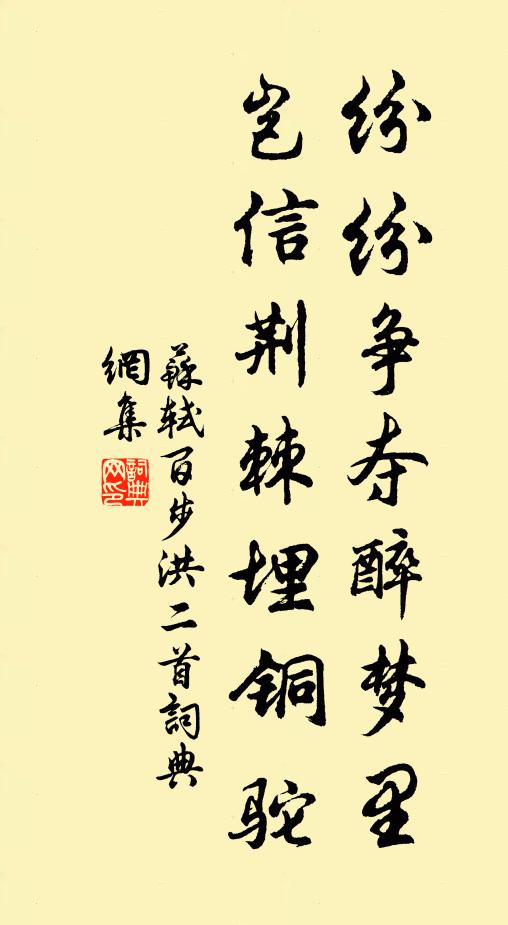 纷纷争夺醉梦里
岂信荆棘埋铜驼
蘇轼百步洪二首詞典
網集
詞典
网印